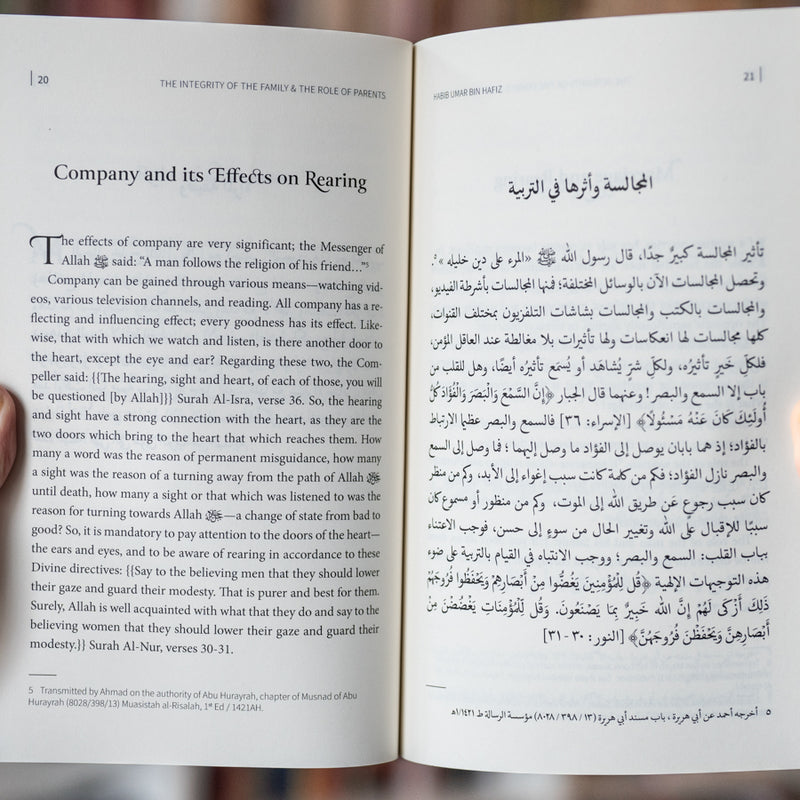 20
THE INTEGRITY OF THE FAMILY & THE ROLE OF PARENTS
Company and its Effects on Rearing
The effects of company are very significant; the Messenger of
Allah ﷺ said: “A man follows the religion of his friend…”⁵
Company can be gained through various means—watching vid-
eos, various television channels, and reading. All company has a re-
flecting and influencing effect; every goodness has its effect. Like-
wise, that with which we watch and listen, is there another door to
the heart, except the eye and ear? Regarding these two, the Com-
peller said: {{The hearing, sight and heart, of each of those, you will
be questioned [by Allah]}} Surah Al-Isra, verse 36. So, the hearing
and sight have a strong connection with the heart, as they are the
two doors which bring to the heart that which reaches them. How
many a word was the reason of permanent misguidance, how many
a sight was the reason of a turning away from the path of Allah ﷻ
until death, how many a sight or that which was listened to was the
reason for turning towards Allah ﷻ—a change of state from bad to
good? So, it is mandatory to pay attention to the doors of the heart—
the ears and eyes, and to be aware of rearing in accordance to these
Divine directives: {{Say to the believing men that they should lower
their gaze and guard their modesty. That is purer and best for them.
Surely, Allah is well acquainted with what they do and say to the
believing women that they should lower their gaze and guard their
modesty.}} Surah Al-Nur, verses 30-31.
5 Transmitted by Ahmad on the authority of Abu Hurayrah, chapter of Musnad of Abu
Hurayrah (8028/398/13) Muasistah al-Risalah, 1st Ed / 1421AH.
HABIB UMAR BIN HAFIZ
21
المجالسة وأثرها في التربية
تأثير المجالسة كبيرٌ جدًا، قال رسول الله ﷺ «المرء على دين خليله»⁵.
وتحصل المجالسات الآن بالوسائل المختلفة؛ فمنها المجالسات بأشرطة الفيديو،
والمجالسات بالكتب والمجالسات بشاشات التلفزيون بمختلف القنوات،
كلها مجالسات لها انعكاسات ولها تأثيرات بلا مغالطة عند العاقل المؤمن،
فلكلّ خيرٍ تأثيره، ولكلّ شرّ يُشاهَد أو يُسمَع تأثيره أيضًا، وهل للقلب من
باب إلا السمع والبصر! وعنهما قال الجبار ﴿إِنَّ السَّمْعَ وَالْبَصَرَ وَالْفُؤَادَ كُلُّ
أُولَئِكَ كَانَ عَنْهُ مَسْئُولًا﴾ [الإسراء: ٣٦] فالسمع والبصر عظيما الارتباط
بالفؤاد؛ إذ هما بابان يوصل إلى الفؤاد ما وصل إليهما؛ فما وصل إلى السمع
والبصر نازل الفؤاد؛ فكم من كلمة كانت سبب إغواء إلى الأبد، وكم من منظر
كان سبب رجوعٍ عَن طريق الله إلى الموت، وكم من منظور أو مسموع كان
سببًا للإقبال على الله وتغيير الحال من سوءٍ إلى حسن، فوجب الاعتناء
بباب القلب: السمع والبصر؛ ووجب الانتباه في القيام بالتربية على ضوء
هذه التوجيهات الإلهية ﴿قُل لِّلْمُؤْمِنِينَ يَغُضُّوا مِنْ أَبْصَارِهِمْ وَيَحْفَظُوا فُرُوجَهُمْ
ذَلِكَ أَزْكَى لَهُمْ إِنَّ اللَّهَ خَبِيرٌ بِمَا يَصْنَعُونَ. وَقُل لِّلْمُؤْمِنَاتِ يَغْضُضْنَ مِنْ
أَبْصَارِهِنَّ وَيَحْفَظْنَ فُرُوجَهُنَّ﴾ [النور: ٣٠-٣١]
٥ أخرجه أحمد عن أبي هريرة، باب مسند أبي هريرة (١٣ / ٣٩٨ / ٨٠٢٨) مؤسسة الرسالة ط ١/١٤٢١هـ